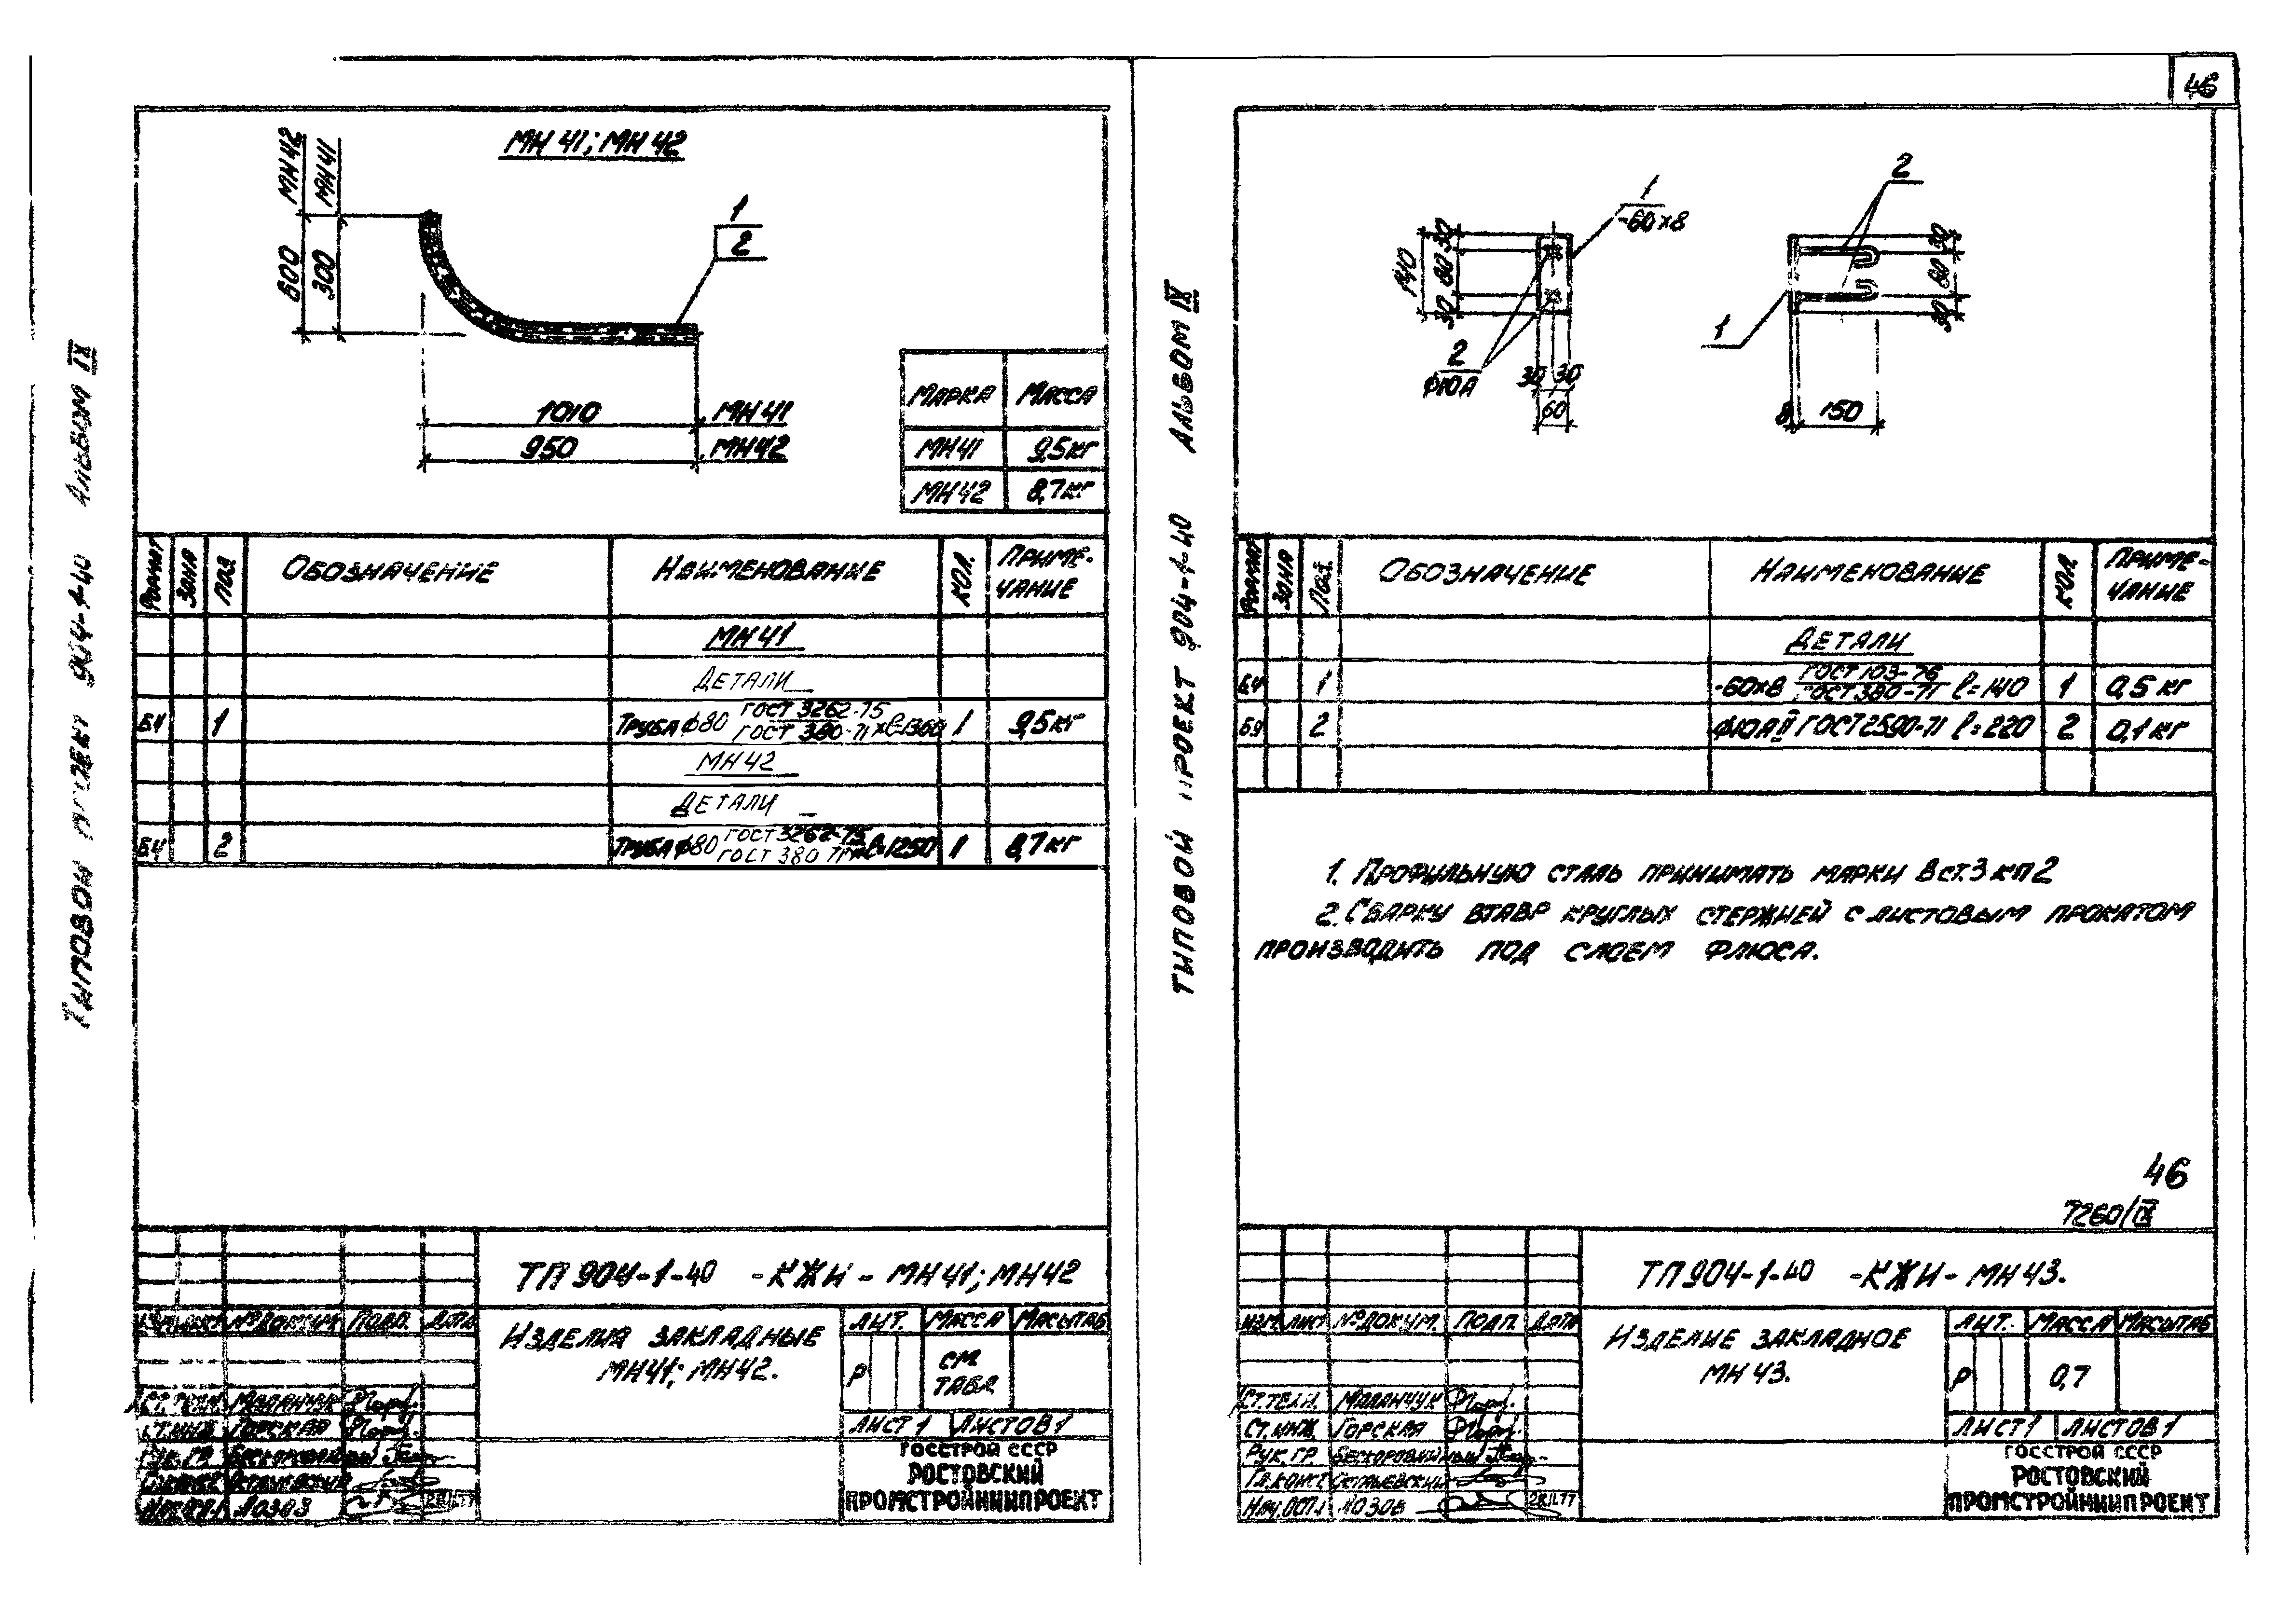 46
Типовой проект 904-1-40 Альбом IX
МН 41; МН 42
МН42
МН41
600
300
1
2
1010
МН 41
950
МН42
Марка Масса
МН41 9,5кг
МН42 8,7кг
Формат Зона Поз Обозначение Наименование Кол. Приме-
чание
МН 41
Детали
Б4 1 Труба ф80 ГОСТ 3262-75
ГОСТ 380-71 ×ℓ=1360 1 9,5кг
МН 42
Детали
Б4 2 Труба ф80 ГОСТ 3262-75
ГОСТ 380-71 ×ℓ=1250 1 8,7кг
ТП 904-1-40 -КЖИ - МН 41; МН 42
№ докум. Подп. Дата
Изделия закладные
МН41; МН42.
Лит. Масса Масштаб
Р
см
табл
Лист 1 Листов 1
Маланчук
Ст.инж. Горская
Рук.гр.
Лозов
Госстрой СССР
Ростовский
Промстройниипроект
Типовой проект 904-1-40 Альбом IX
1
-60×8
140
30
80
30
2
ф10А
30 30
60
2
30
80
30
1
8 150
Формат Зона Поз. Обозначение Наименование Кол Приме-
чание
Детали
Б4 1 -60×8 ГОСТ 103-76
ГОСТ 380-71 ℓ=140 1 0,5 кг
Б9 2 ф10А II ГОСТ 2590-71 ℓ=220 2 0,1 кг
1. Профильную сталь принимать марки Вст.3 кп2
2. Сварку втавр круглых стержней с листовым прокатом
производить под слоем флюса.
46
7260/IX
ТП 904-1-40 -КЖИ- МН 43.
Изм. Лист № докум. Подп. Дата
Изделие закладное
МН 43.
Лит. Масса Масштаб
Р 0,7
Лист 1 Листов 1
Ст.техн. Маланчук
Ст.инж. Горская
Рук.гр. Бескоровайный
Гл.конст.
Нач.отд. Лозов
Госстрой СССР
Ростовский
Промстройниипроект